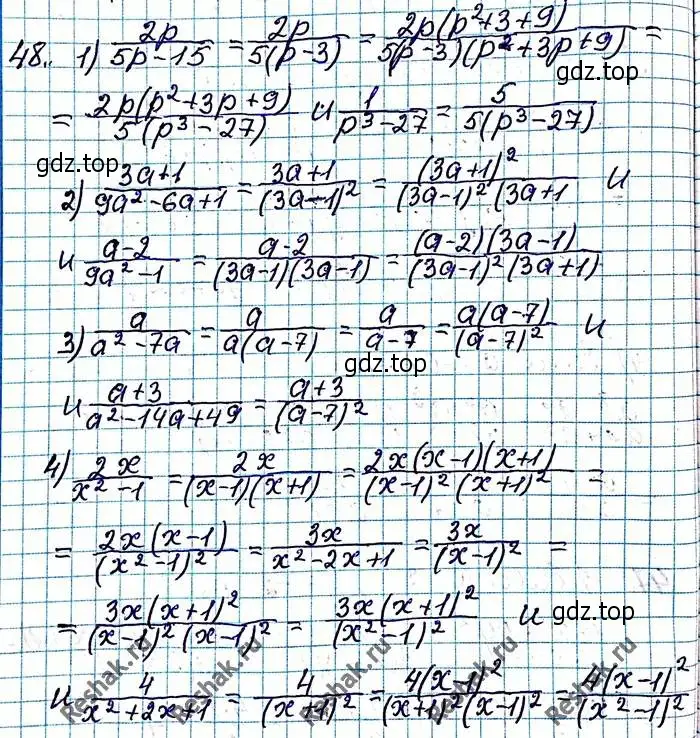 48. 1) 2p/(5p-15) = 2p/(5(p-3)) = 2p(p²+3+9)/(5(p-3)(p²+3p+9)) =
gdz.top
= 2p(p²+3p+9)/(5(p³-27)) и 1/(p³-27) = 5/(5(p³-27))
gdz.top
2) (3a+1)/(9a²-6a+1) = (3a+1)/(3a-1)² = (3a+1)²/((3a-1)²(3a+1 и
и (a-2)/(9a²-1) = (a-2)/((3a-1)(3a-1)) = (a-2)(3a-1)/((3a-1)²(3a+1))
3) a/(a²-7a) = a/(a(a-7)) = a/(a-7) = a(a-7)/(a-7)² и
gdz.top
и (a+3)/(a²-14a+49) = (a+3)/(a-7)²
4) 2x/(x²-1) = 2x/((x-1)(x+1)) = 2x(x-1)(x+1)/((x-1)²(x+1)²) =
= 2x(x-1)/(x²-1)² = 3x/(x²-2x+1) = 3x/(x-1)² =
= 3x(x+1)²/((x-1)²(x-1)²) = 3x(x+1)²/(x²-1)² и gdz.top
и 4/(x²+2x+1) = 4/(x+1)² = 4(x-1)²/((x+1)²(x-1)²) = 4(x-1)²/(x²-1)²
Reshak.ru
Reshak.ru
Reshak.ru
Reshak.ru